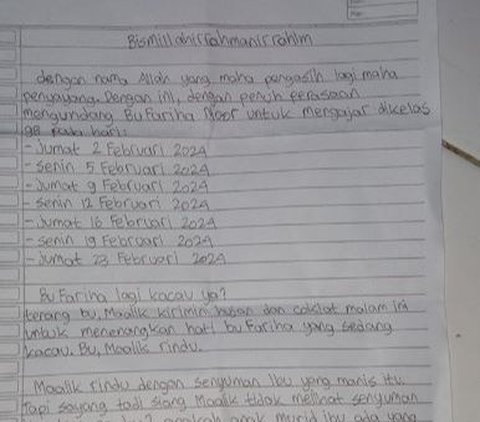 Bismillahirrahmanirrahim
dengan nama Allah yang maha pengasih lagi maha
penyayang. Dengan ini, dengan penuh perasaan
mengundang Bu Fariha Noor untuk mengajar dikelas
9B pada hari:
- Jumat 2 Februari 2024
- Senin 5 Februari 2024
- Jumat 9 Februari 2024
- Senin 12 Februari 2024
- Jumat 16 Februari 2024
- Senin 19 Februari 2024
- Jumat 23 Februari 2024
Bu Fariha lagi kacau ya?
terang bu, Maalik kirimin hujan dan coklat malam ini
untuk menenangkan hati bu Fariha yang sedang
kacau. Bu, Maalik rindu.
Maalik rindu dengan senyuman ibu yang manis itu.
Tapi sayang tadi siang Maalik tidak melihat senyuman
anak murid ibu ada yang